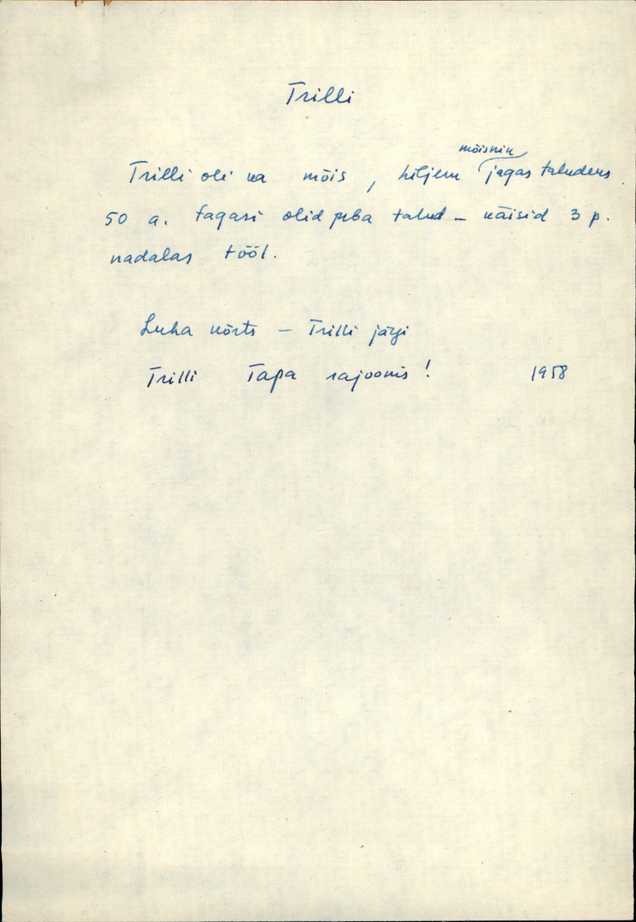 Trilli
Trilli oli ka mõis, hiljem mõisnik jagas taludeks.
50 a. tagasi olid juba talud – käisid 3 p.
nädalas tööl.
Luha kõrts – Trilli järgi
Trilli Tapa rajoonis! 1958